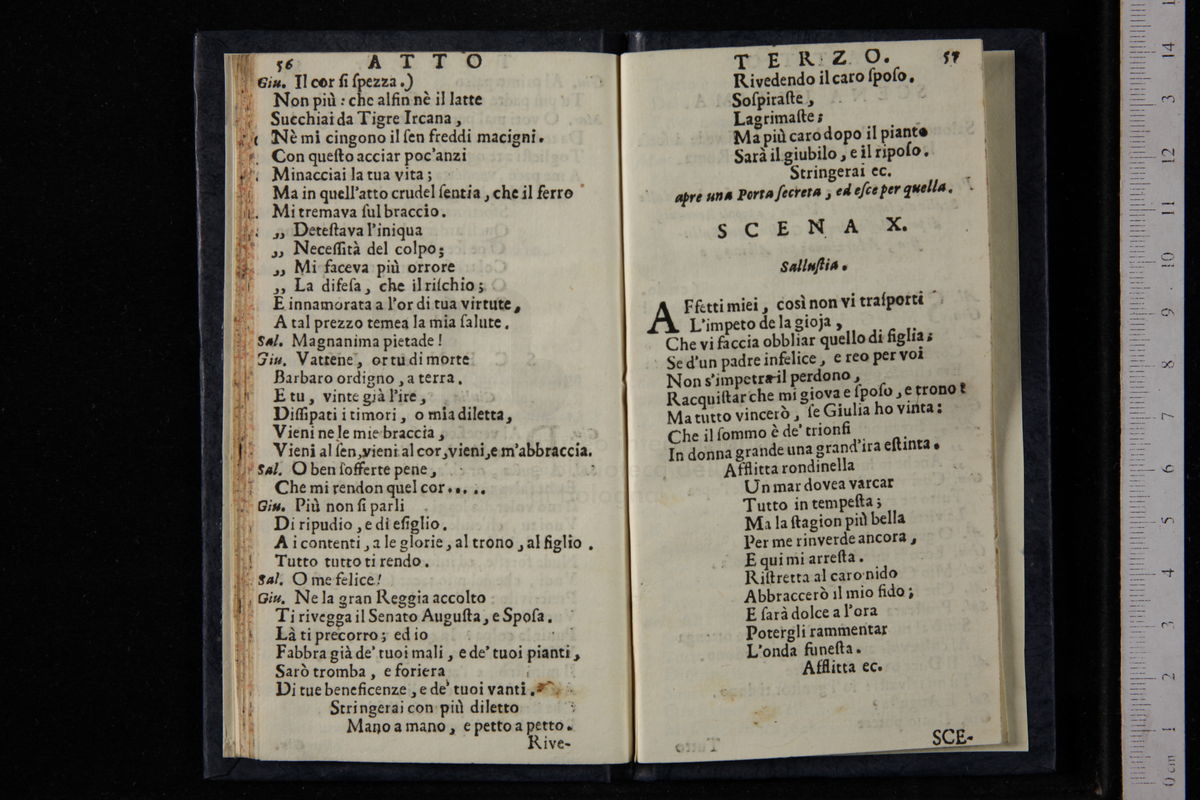 56 ATTO
Giu. Il cor ſi ſpezza.)
Non più: che alfin nè il latte
Succhiai da Tigre Ircana,
Nè mi cingono il ſen freddi macigni.
Con queſto acciar poc'anzi
Minacciai la tua vita;
Ma in quell'atto crudel ſentia, che il ferro
Mi tremava ſul braccio.
,, Deteſtava l'iniqua
,, Neceſſità del colpo;
,, Mi faceva più orrore
,, La difeſa, che il riſchio;
E innamorata a l'or di tua virtute,
A tal prezzo temea la mia ſalute.
Sal. Magnanima pietade!
Giu. Vattene, or tu di morte
Barbaro ordigno, a terra.
E tu, vinte già l'ire,
Diſſipati i timori, o mia diletta,
Vieni ne le mie braccia,
Vieni al ſen, vieni al cor, vieni, e m'abbraccia.
Sal. O ben ſofferte pene,
Che mi rendon quel cor.....
Giu. Più non ſi parli
Di ripudio, e di eſiglio.
A i contenti, a le glorie, al trono, al figlio.
Tutto tutto ti rendo.
Sal. O me felice!
Giu. Ne la gran Reggia accolto
Ti rivegga il Senato Auguſta, e Spoſa.
Là ti precorro; ed io
Fabbra già de' tuoi mali, e de' tuoi pianti,
Sarò tromba, e foriera
Di tue beneficenze, e de' tuoi vanti.
Stringerai con più diletto
Mano a mano, e petto a petto.
Rive-
TERZO. 57
Rivedendo il caro ſpoſo.
Soſpiraſte,
Lagrimaſte;
Ma più caro dopo il pianto
Sarà il giubilo, e il ripoſo.
Stringerai ec.
apre una Porta ſecreta, ed eſce per quella.
SCENA X.
Salluſtia.
AFfetti miei, così non vi traſporti
L'impeto de la gioja,
Che vi faccia obbliar quello di figlia;
Se d'un padre infelice, e reo per voi
Non s'impetra il perdono,
Racquiſtar che mi giova e ſpoſo, e trono?
Ma tutto vincerò, ſe Giulia ho vinta:
Che il ſommo è de' trionfi
In donna grande una grand'ira eſtinta.
Afflitta rondinella
Un mar dovea varcar
Tutto in tempeſta;
Ma la ſtagion più bella
Per me rinverde ancora,
E qui mi arreſta.
Riſtretta al caro nido
Abbraccerò il mio fido;
E ſarà dolce a l'ora
Potergli rammentar
L'onda funeſta.
Afflitta ec.
SCE-